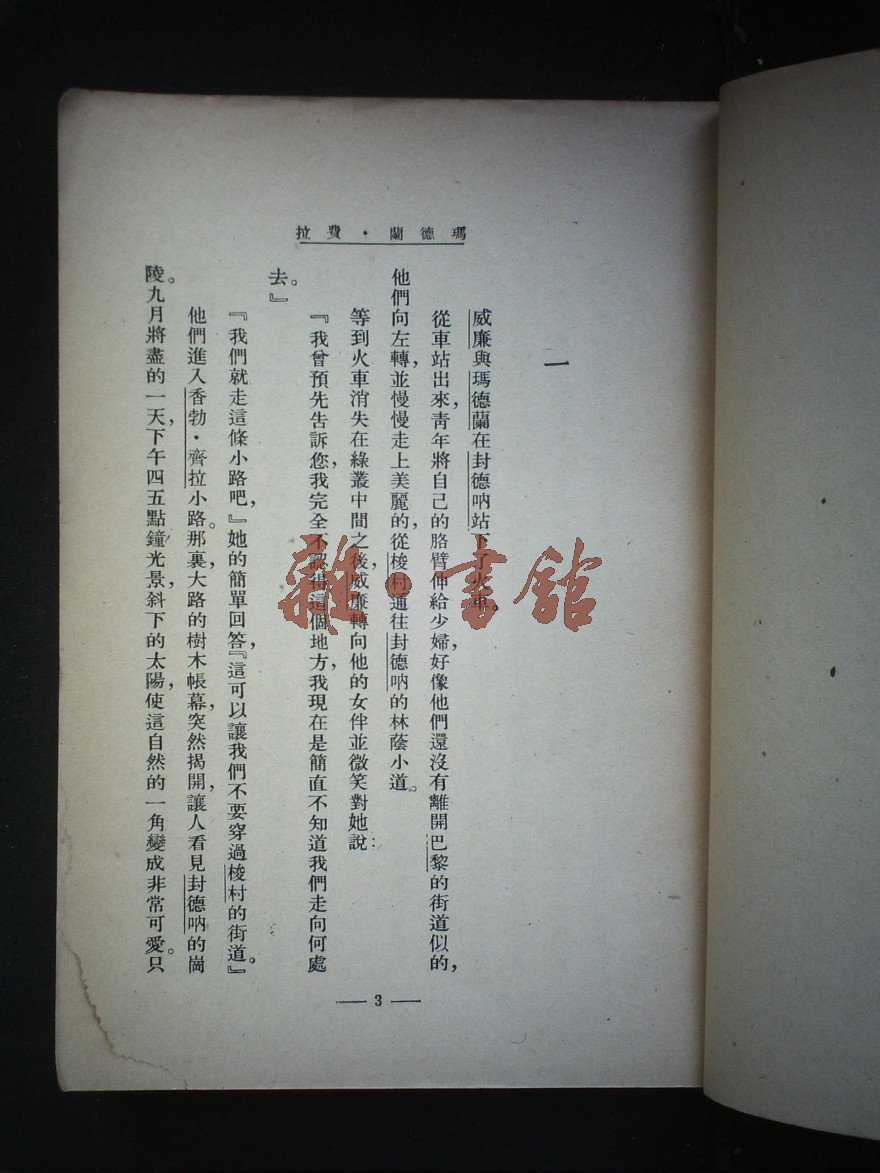 瑪德蘭·費拉
一
威廉與瑪德蘭在封德吶站下了火車。
從車站出來，青年將自己的胳臂伸給少婦，好像他們還沒有離開巴黎的街道似的，
他們向左轉，並慢慢走上美麗的，從梭村通往封德吶的林蔭小道。
等到火車消失在綠叢中間之後，威廉轉向他的女伴並微笑對她說：
『我曾預先告訴您，我完全不認得這個地方，我現在是簡直不知道我們走向何處
去。』
『我們就走這條小路吧，』她的簡單回答，『這可以讓我們不要穿過梭村的街道。』
他們進入香勃·齊拉小路。那裏，大路的樹木帳幕，突然揭開，讓人看見封德吶的崗
陵。九月將盡的一天，下午四五點鐘光景，斜下的太陽，使這自然的一角變成非常可愛。只
— 3 —
雜·書館